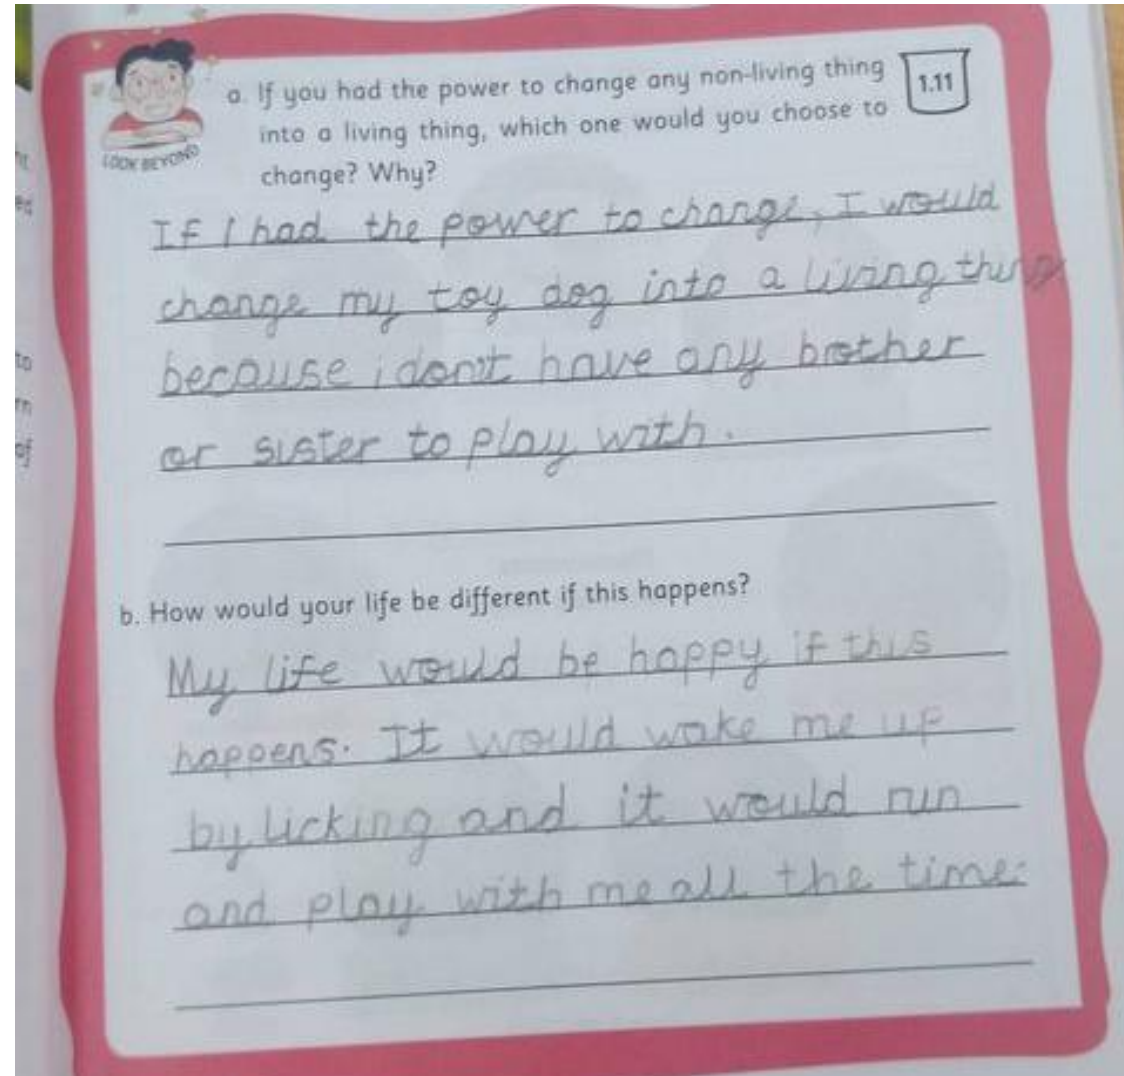 a. If you had the power to change any non-living thing
1.11
into a living thing, which one would you choose to
LOOK BEYOND
change? Why?
If I had the power to change, I would
change my toy dog into a living thing
because i don't have any brother
or sister to play with.
b. How would your life be different if this happens?
My life would be happy if this
happens. It would wake me up
by licking and it would run
and play with me all the time.
to
of